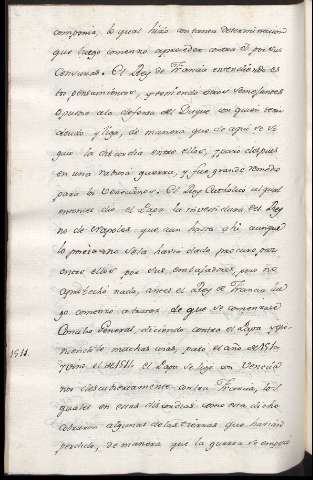 componia, lo qual hizo con tanta determinacion
que luego comenzo a proceder contra el por sus
Censuras. El Rey de Francia entendiendo es
tos pensamientos, y teniendo otros semejantes
a la defensa del Duque con quien tenia
deudo y liga, de manera que de aqui se si
guio la discordia entre ellos, y paro despues
en una guerra, y fue grande remedio
para los Venecianos. El Rey Catholico al qual
entonces dio el Papa la investidura del Rey
no de Napoles que aun hasta ahi aunque
lo no se la havia dado, procuro paz
entre ellos por sus embajadores, pero no
aprovechó nada, antes el Rey de Francia lue
go comenzo a tratar de que se comenzase
Concilio General, diciendo contra el Papa y po
niendole machas, paso el año de 1510
1511. y vino el de 1511 el Papa se ligo con Venecia
nos descubiertamente contra Francia, los
quales en estas discordias como esta dicho
cobraron algunas de las tierras que havian
perdido, de manera que la guerra se empezo